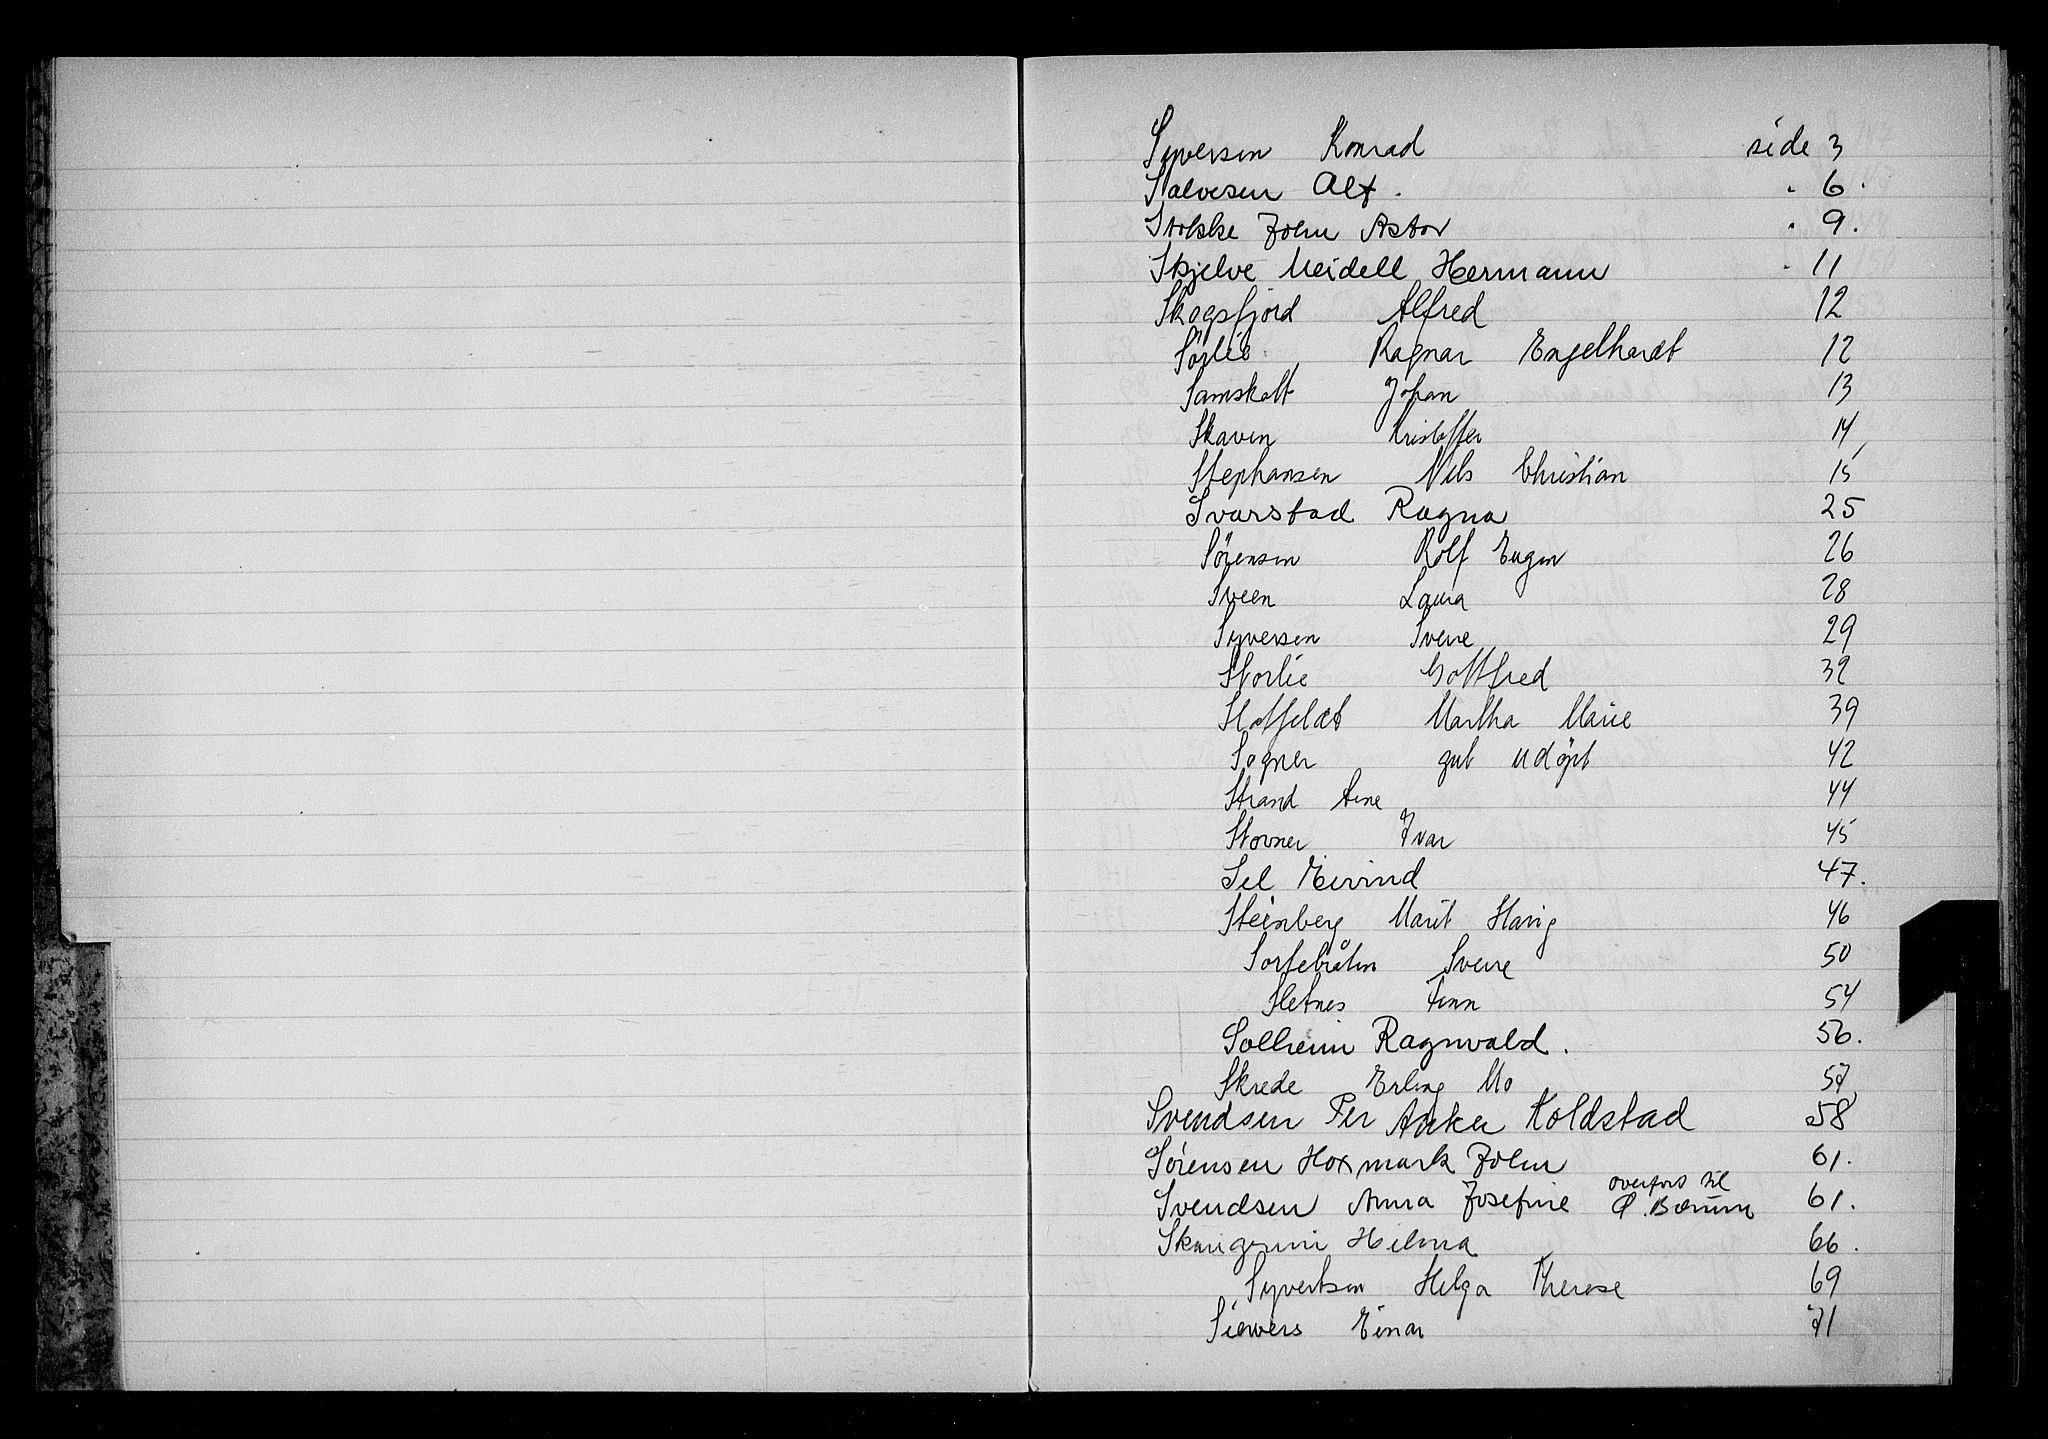 Syversen Konrad side 3
Salvesen Alf. " 6.
Stokke John Astor " 9.
Skjelve Meidell Hermann " 11
Skogsfjord Alfred 12
Sörlie Ragnar Engelhardt 12
Samskott Johan 13
Skaven Kristoffer 14
Stephansen Nils Christian 15
Svarstad Ragna 25
Sörensen Rolf Eugen 26
Sveen Laura 28
Syversen Sverre 29
Storlie Gottfred 32
Slottfeldt Martha Marie 39
Sogner gut udöpt 42
Strand Arne 44
Stovner Ivar 45
Sel Eivind 47.
Steinberg Marit Havig 46
Sortebråten Sverre 50
Sletnes Finn 54
Solheim Ragnvald. 56.
Skrede Erling Mo 57
Svendsen Per Anker Koldstad 58
Sørensen Hoxmark John 61.
Svendsen Anna Josefine overført til Ø. Bærum 61.
Hilma 66.
Syvertsen Helga Therese 69
Siewers Einar 71